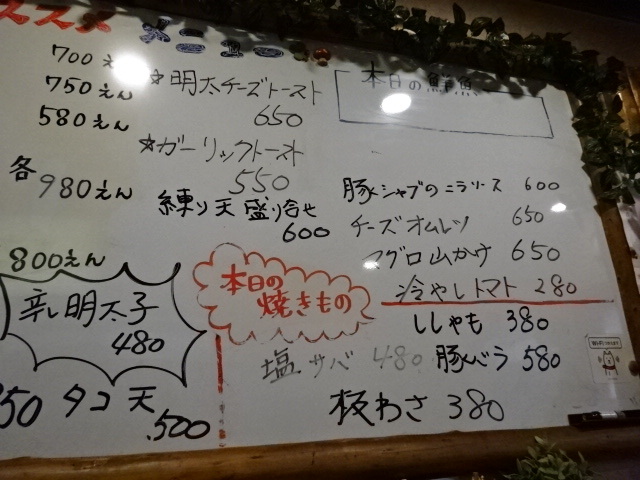 ススメ メニュー
700えん
750えん
580えん
各
980えん
800えん
辛し明太子
480
350 タコ天
.500
☆明太チーズトースト
650
☆ガーリックトースト
550
練り天盛り合せ
600
本日の鮮魚
豚シャブのニラソース 600
チーズオムレツ 650
マグロ山かけ 650
冷やしトマト 280
本日の
焼きもの
ししゃも 380
塩サバ 480
豚バラ 580
板わさ 380